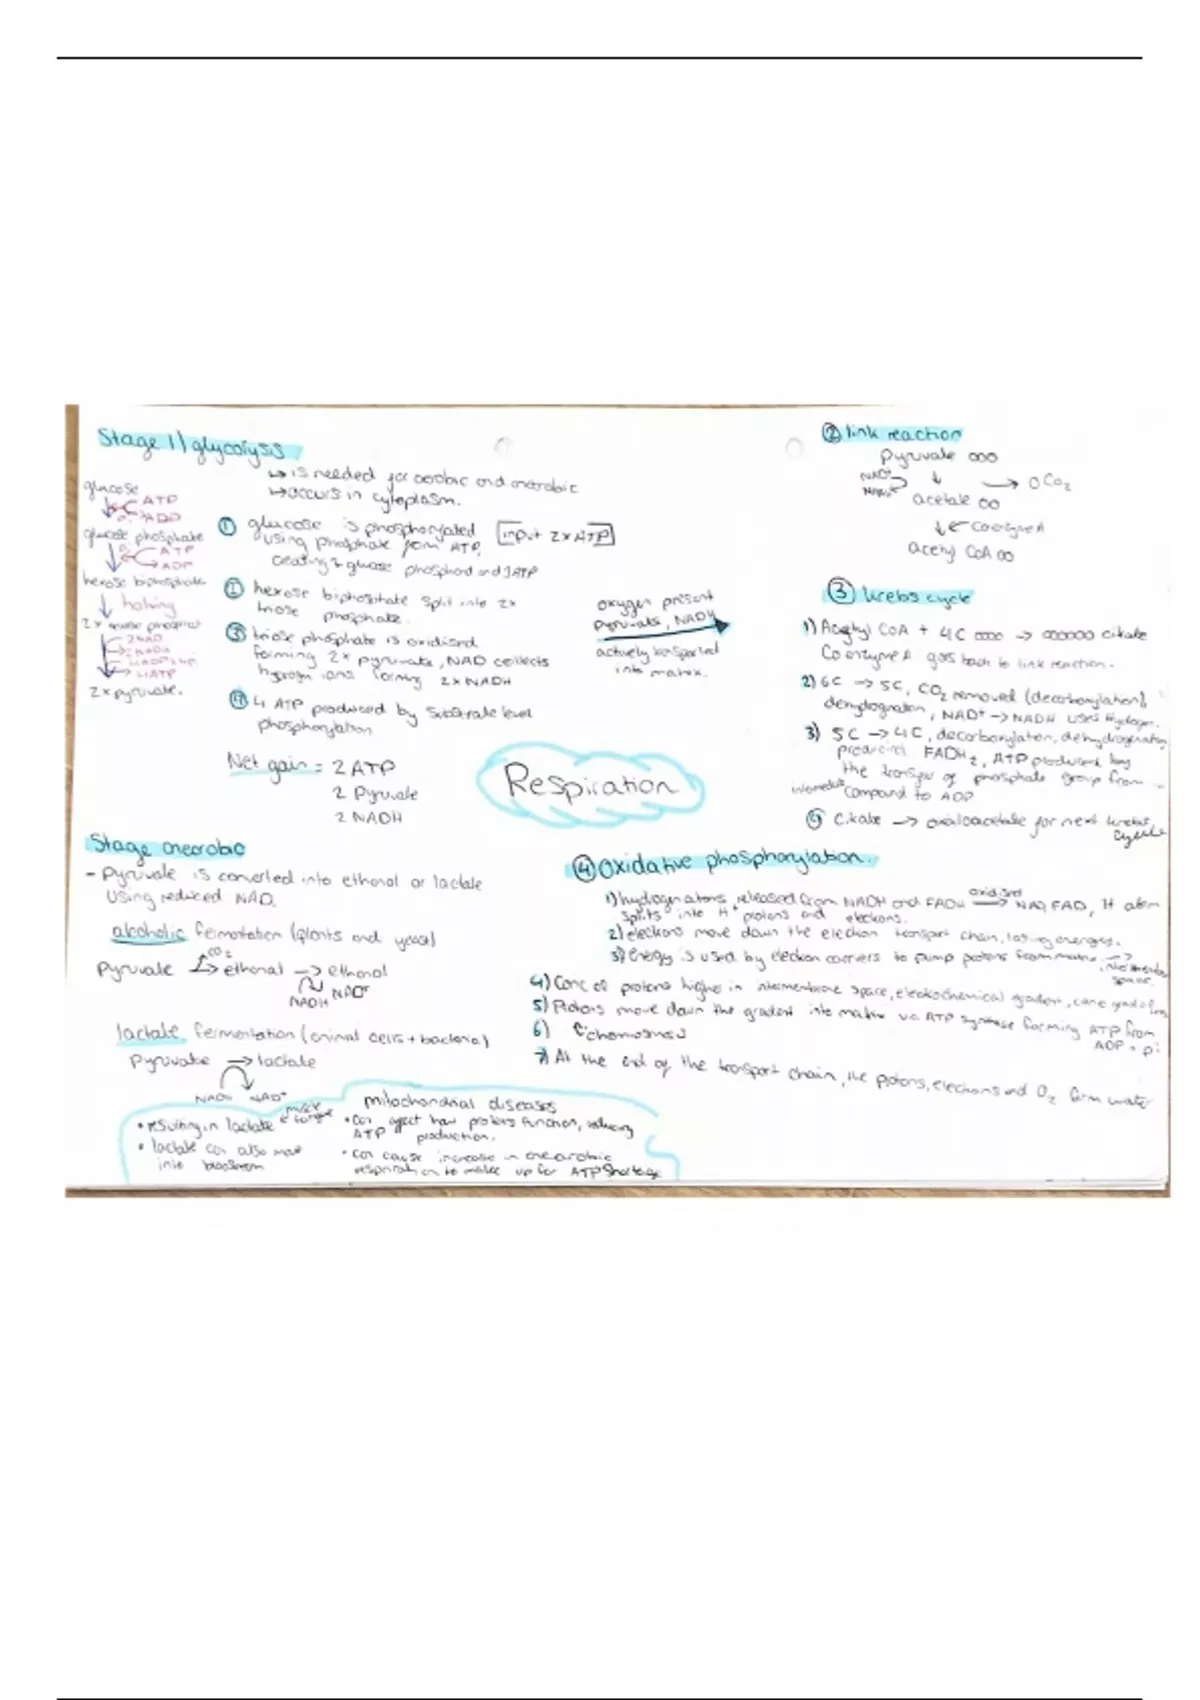 Stage 1) glycolysis
↳ is needed for aerobic and anerobic
↳ occurs in cytoplasm.
glucose
ATP
ADP
glucose phosphate
ATP
ADP
hexose biphosphate
halving
2x phosphat
2NAD
2NADH
4ATP
2x pyruvate.
① glucose is phosphorylated
using phosphate from ATP,
creating glucose phosphate and
[input 2xATP]
② hexose biphosphate split into 2x
triose phosphate.
③ triose phosphate is oxidised
forming 2x pyruvate, NAD collects
hydrogen ions forming 2xNADH
④ 4 ATP produced by substrate level
phosphorylation
Net gain = 2 ATP
2 Pyruvate
2 NADH
oxygen present
pyruvate, NADH
actively transported
into matrix.
② link reaction
pyruvate ooo
NAD+
→ O CO2
acetate oo
↓ ← Coenzyme A
acetyl CoA oo
③ Krebs cycle
1) Acetyl CoA + 4C oooo → oooooo citrate
Coenzyme A goes back to link reaction.
2) 6C → 5C, CO2 removed (decarboxylation),
NAD+ → NADH uses hydrogen.
3) 5C → 4C, decarboxylation, dehydrogenation
FADH2, ATP produced by
the transfer of phosphate group from
intermediate compound to ADP
④ citrate → oxaloacetate for next krebs
cycle
Respiration
Stage anerobic
- Pyruvate is converted into ethanol or lactate
using reduced NAD.
alcoholic fermentation (plants and yeast)
CO2
Pyruvate → ethanal → ethanol
NADH NAD+
lactate fermentation (animal cells + bacteria)
Pyruvate → lactate
NADH NAD+
• resulting in lactate
• lactate can also move
into bloodstream
mitochondrial diseases
• can affect how proteins function, reducing
ATP production.
• can cause increase in anearobic
respiration to make up for ATP shortage
④ Oxidative phosphorylation.
1) hydrogen atoms released from NADH and FADH oxidised → NAD, FAD, H atom
splits into H+ protons and electrons.
2) electrons move down the electron transport chain, losing energy.
3) Energy is used by electron carriers to pump protons from matrix → intermembrane
space.
4) Conc of protons higher in intermembrane space, electrochemical gradient,
5) Protons move down the gradient into matrix via ATP synthase forming ATP from
ADP + pi
6)
7) At the end of the transport chain, the protons, electrons and O2 form water